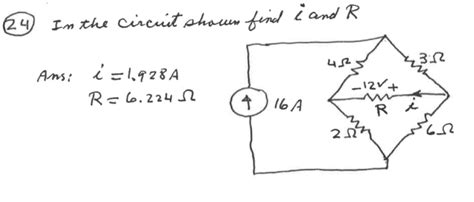 24 In the circuit shown find i and R
Ans: i = 1.928 A
R = 6.224 Ω
4Ω 3Ω
- 12V +
16 A R i
2Ω 6Ω